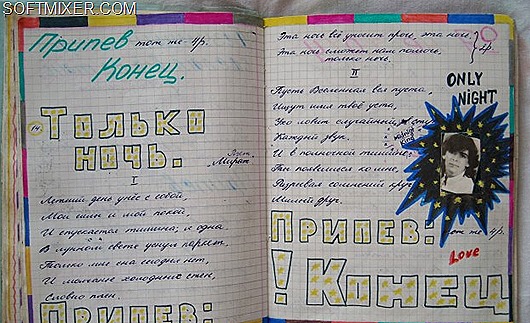 SOFTMIXER.COM
Припев тот же 4р.
Конец.
14 Только
ночь.
Поёт Мираж.
I
Летний день унёс с собой,
Мои сны и мой покой,
И спускается тишина, и одна
В лунном свете уснул паркет,
Только мне сна сегодня нет,
И молчанье холодных стен,
Словно плен.
Припев:
Эта ночь всё упростит прочь, эта ночь
Эта ночь сможет нам помочь,
только ночь.
4р.
II
Пусть Вселенная вся пуста,
Ищут имя твоё уста,
Ухо ловит случайный стук
Каждый звук.
И в полночной тишине
Ты появишься ко мне,
Разрывая сомнений круг
Милый друг.
ONLY
NIGHT
Припев: тот же 4р.
Love
! Конец
SOFTMIXER.COM